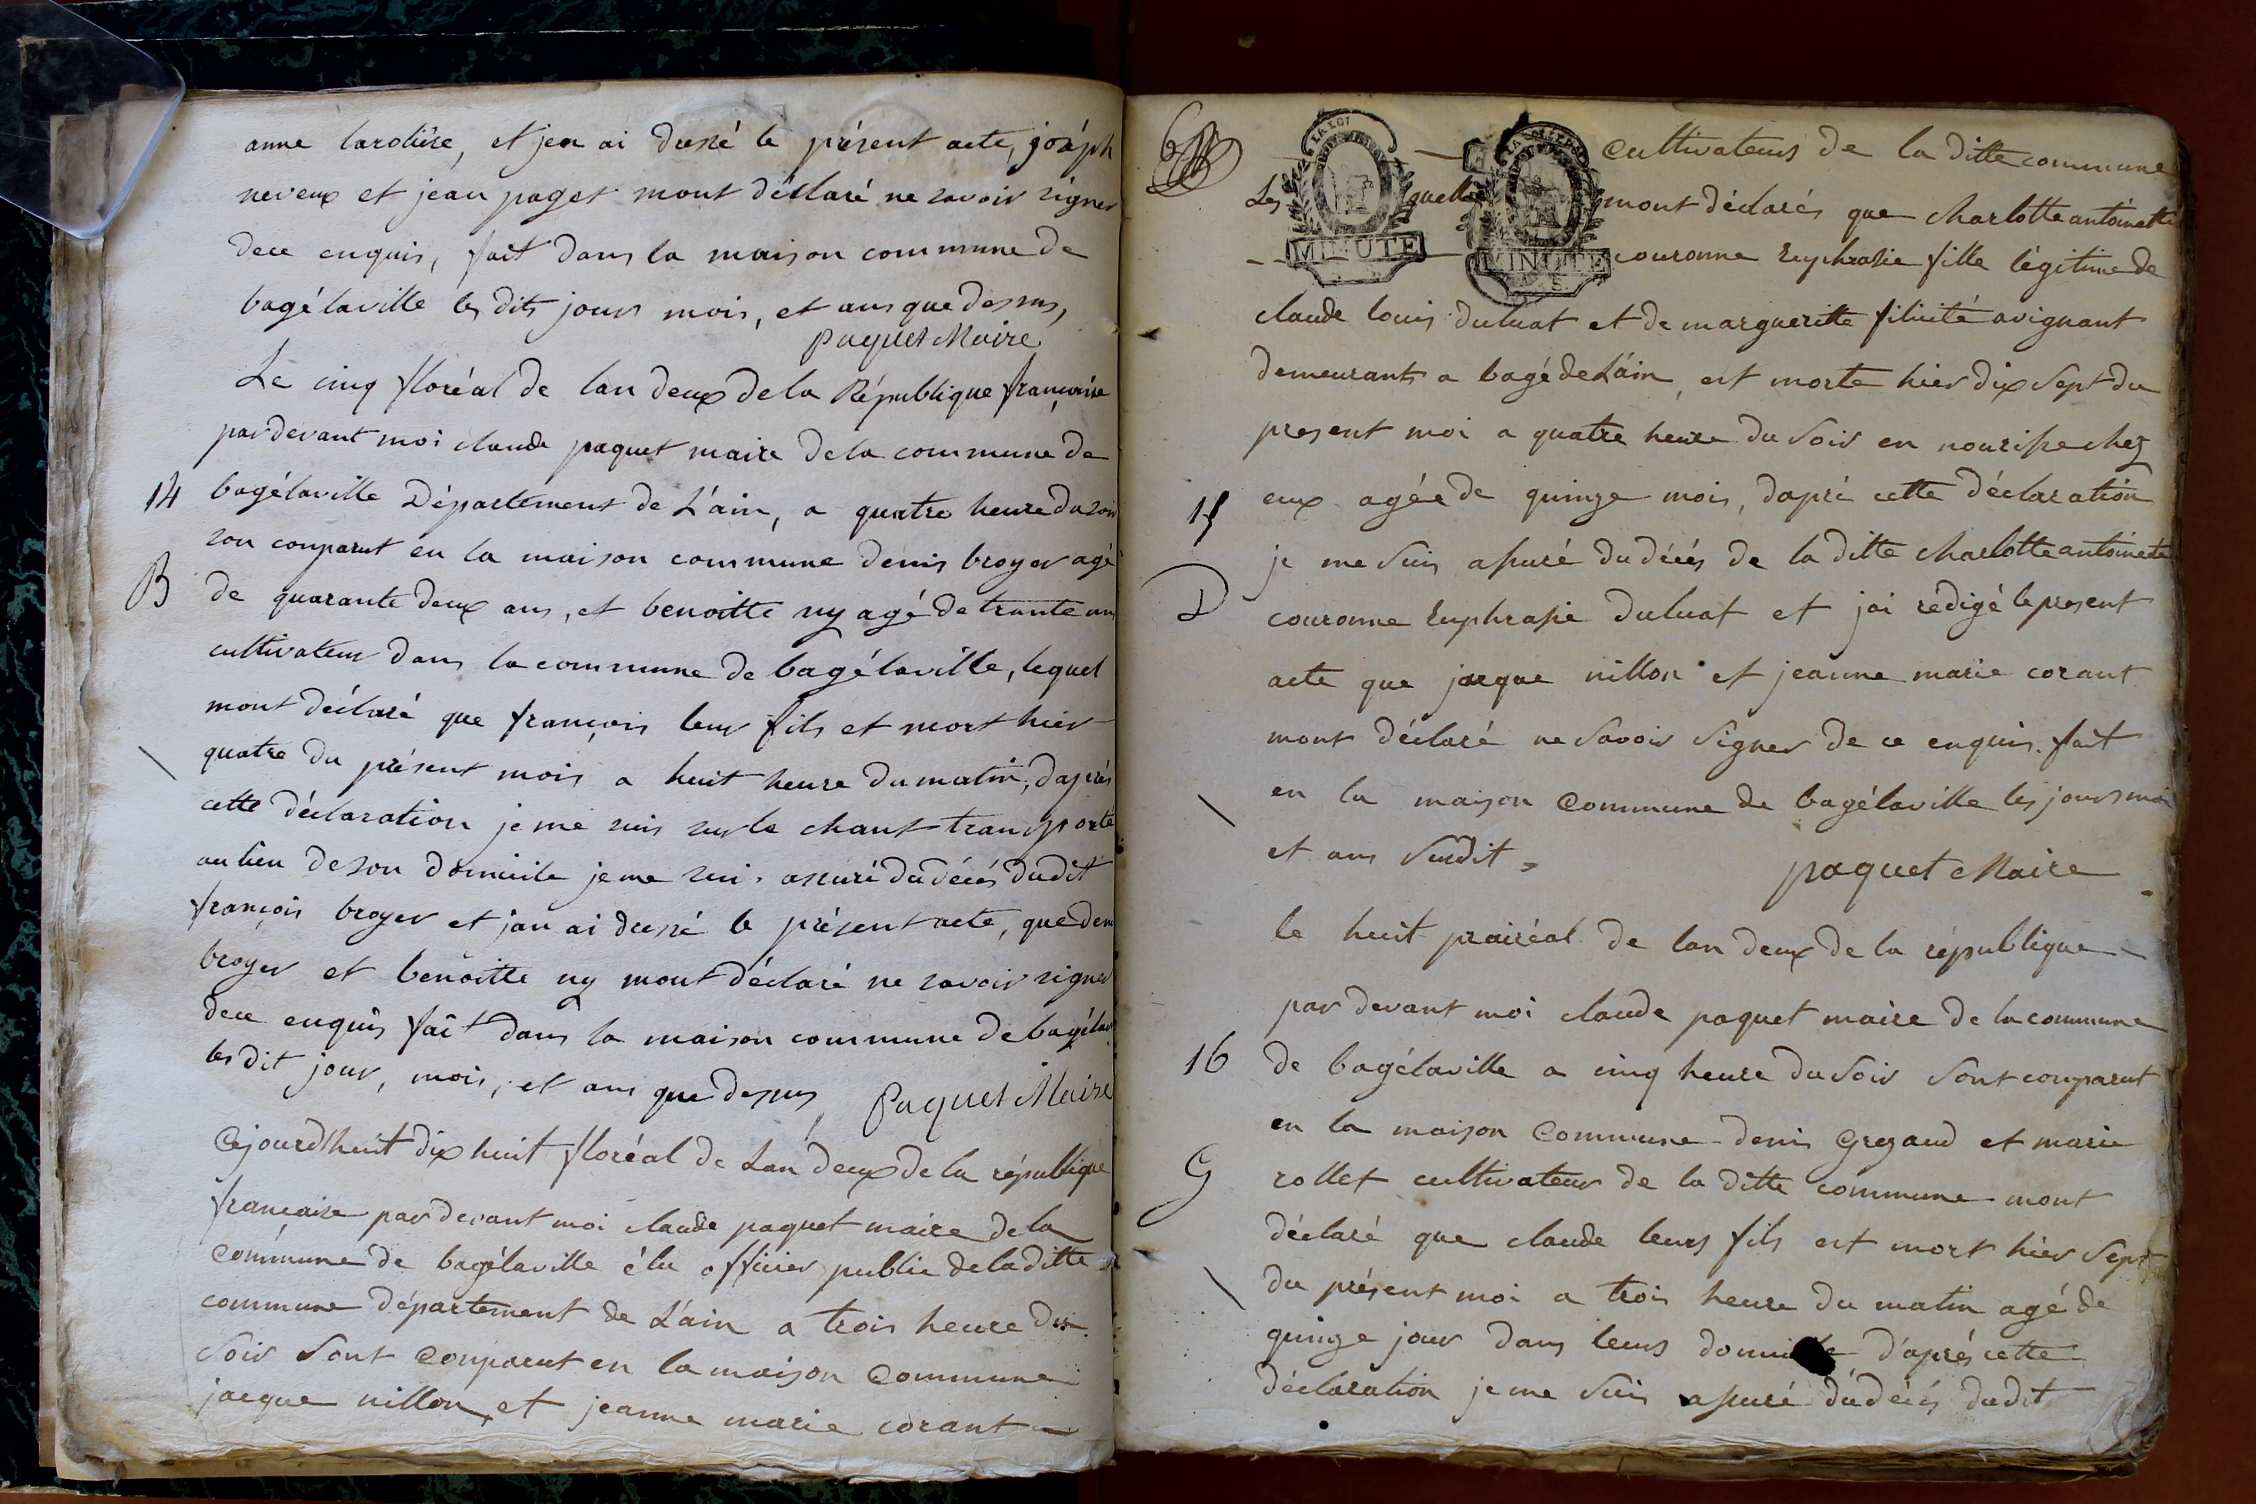 anne larolière, et jen ai dressé le présent acte, joséph
neveux et jean paget mont déclaré ne savoir signer
dece enquis, fait dans la maison commune de
bagélaville les dits jours mois, et ans que dessus,
paquet Maire
Le cinq floréal de lan deux de la République française
pardevant moi claude paquet maire de la commune de
14
bagélaville Département de L'ain, a quatre heure du soir
son comparut en la maison commune denis broyer agé
B
de quarante deux ans, et benoitte ny agé de trante ans
cultivateur dans la commune de bagélaville, lequel
mont déclaré que françois leur fils et mort hier
quatre du présent mois a huit heure du matin, daprés
cette déclaration je me suis sur le chant transporté
au lieu de son domicile je me suis assuré du décés dudit
françois broyer et jan ai dressé le présent acte, que deni
broyer et benoitte ny mont déclaré ne savoir signer
dece enquis fait dans la maison commune de bagélav
les dit jour, mois, et ans que dessus, Paquet Maire
Cejourdhuit dix huit floréal de Lan deux de la république
française pardevant moi claude paquet maire de la
commune de bagélaville élu officier public de la ditte
commune département de L'ain a trois heure du
soir sont comparut en la maison commune
jacque nillon, et jeanne marie corant
6
LA LOI
MINUTE
MINUTE
cultivateurs de la ditte commune
Les quelle mont déclarés que charlotte antoinette
couronne Euphrasie fille légitime de
claude louis duluat et de margueritte filicité avignant
demeurants a bagé de L'ain, est morte hier dix sept du
present moi a quatre heure du soir en nourisse chez
15
eux agée de quinze mois, dapré cette déclaration
je me suis assuré du décés de la ditte charlotte antoinete
D
couronne Euphrasie duluat et jai rédigé le present
acte que jacque nillon et jeanne marie corant
mont déclaré ne savoir signer de ce enquis. fait
en la maison commune de bagélaville les jours moi
et ans susdit,
paquet Maire
le huit prairéal de lan deux de la république
par devant moi claude paquet maire de la commune
16
de bagélaville a cinq heure du soir sont comparut
en la maison commune denis Gregaud et marie
G
rollet cultivateur de la ditte commune mont
déclaré que claude leurs fils est mort hier sept
du présent moi a trois heure du matin agé de
quinze jour dans leurs domicile d'aprés cette
déclaration je me suis assuré du décés dudit